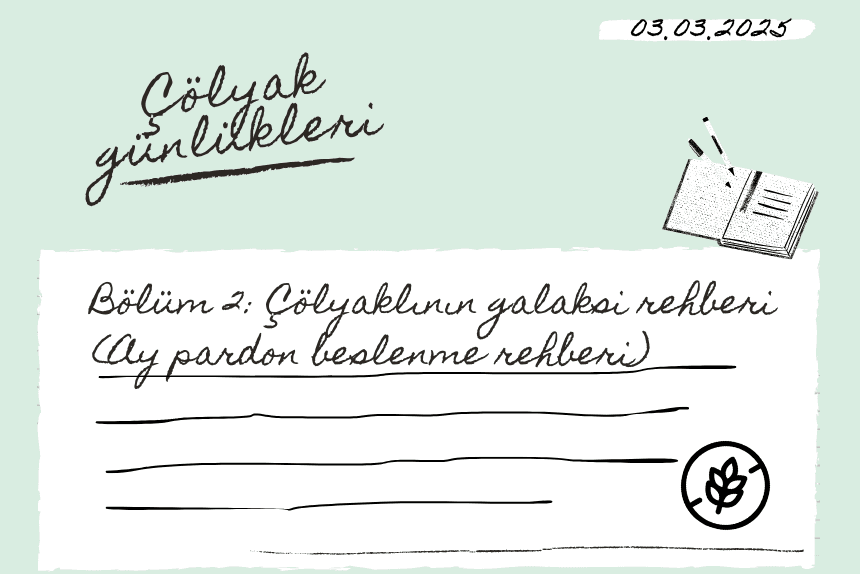 03.03.2025
Çölyak
günlükleri
Bölüm 2: Çölyaklının galaksi rehberi
(Ay pardon beslenme rehberi)